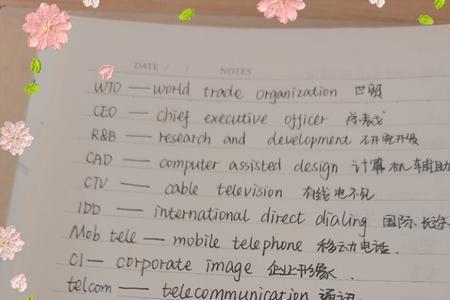 DATE / / NOTES
WTO — world trade organization 世贸
CEO — chief executive officer
R&B — research and development 研究开发
CAD — computer assisted design 计算机辅助
CTV — cable television 有线电视
IDD — international direct dialing 国际长途
Mob tele — mobile telephone 移动电话.
CI — corporate image 企业形象.
telcom — telecommunication 通讯